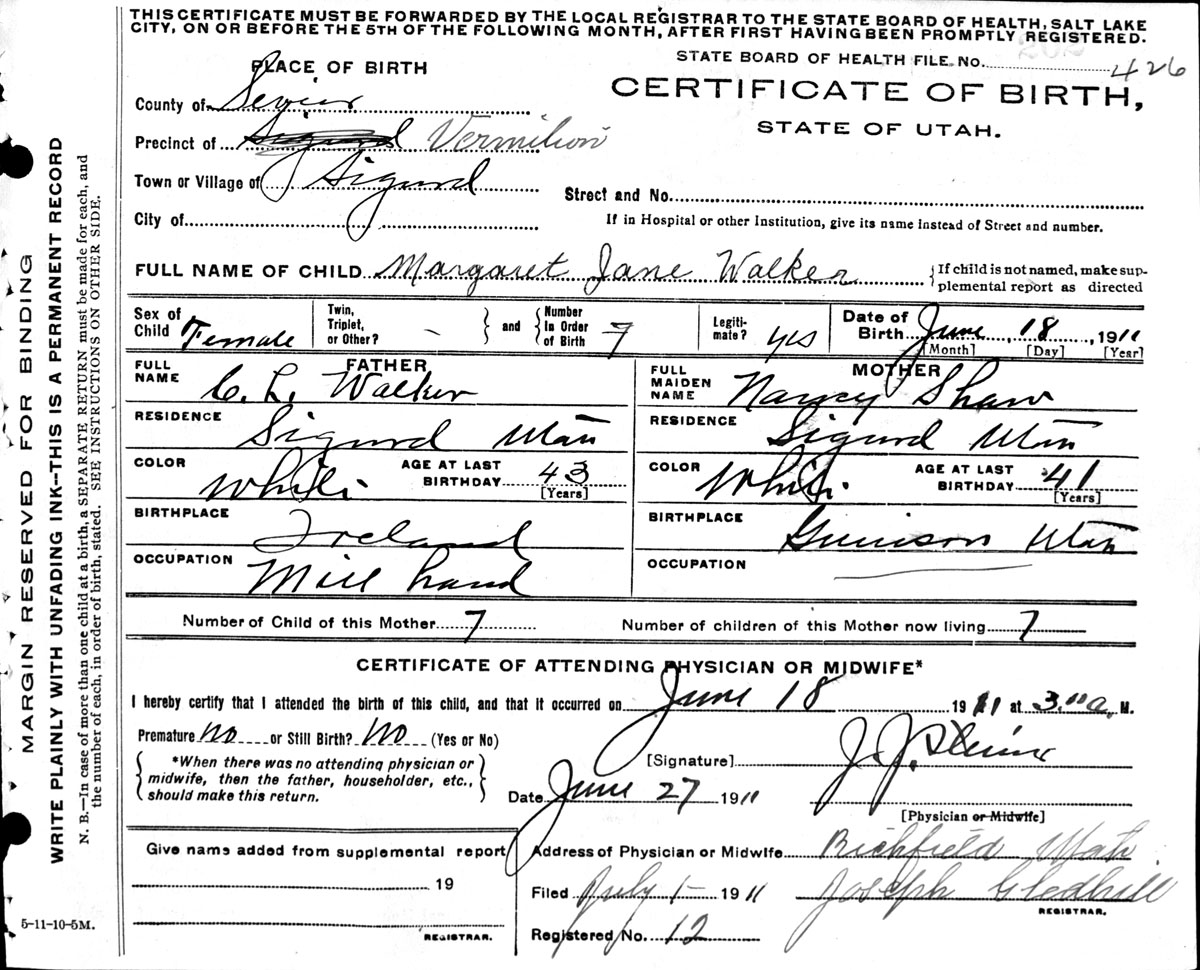 THIS CERTIFICATE MUST BE FORWARDED BY THE LOCAL REGISTRAR TO THE STATE BOARD OF HEALTH, SALT LAKE
CITY, ON OR BEFORE THE 5TH OF THE FOLLOWING MONTH, AFTER FIRST HAVING BEEN PROMPTLY REGISTERED.
STATE BOARD OF HEALTH FILE NO. 426
PLACE OF BIRTH
CERTIFICATE OF BIRTH,
STATE OF UTAH.
County of Sevier
Precinct of Sigurd Vermilion
Town or Village of Sigurd
Street and No.
City of
If in Hospital or other Institution, give its name instead of Street and number.
FULL NAME OF CHILD Margaret Jane Walker
{If child is not named, make sup-
plemental report as directed
Sex of Child Female
Twin, Triplet, or Other? -
and
Number In Order of Birth 7
Legiti- mate? yes
Date of Birth June 18, 1911
[Month] [Day] [Year]
FATHER
FULL NAME C. L. Walker
RESIDENCE Sigurd Utah
COLOR White
AGE AT LAST BIRTHDAY 43
[Years]
BIRTHPLACE Ireland
OCCUPATION Mill hand
MOTHER
FULL MAIDEN NAME Nancy Shaw
RESIDENCE Sigurd Utah
COLOR White
AGE AT LAST BIRTHDAY 41
[Years]
BIRTHPLACE Gunnison Utah
OCCUPATION
Number of Child of this Mother 7
Number of children of this Mother now living 7
CERTIFICATE OF ATTENDING PHYSICIAN OR MIDWIFE*
I hereby certify that I attended the birth of this child, and that it occurred on June 18 1911 at 3 a. M.
Premature no or Still Birth? No (Yes or No)
*When there was no attending physician or
midwife, then the father, householder, etc.,
should make this return.
[Signature] J. J.
Date June 27 1911
[Physician or Midwife]
Give name added from supplemental report
19
REGISTRAR.
Address of Physician or Midwife Richfield Utah
Filed July 1- 1911 Joseph Gledhill
REGISTRAR.
Registered No. 12
5-11-10-5M.
MARGIN RESERVED FOR BINDING
WRITE PLAINLY WITH UNFADING INK--THIS IS A PERMANENT RECORD
N. B.—In case of more than one child at a birth, a SEPARATE RETURN must be made for each, and
the number of each, in order of birth, stated. SEE INSTRUCTIONS ON OTHER SIDE.